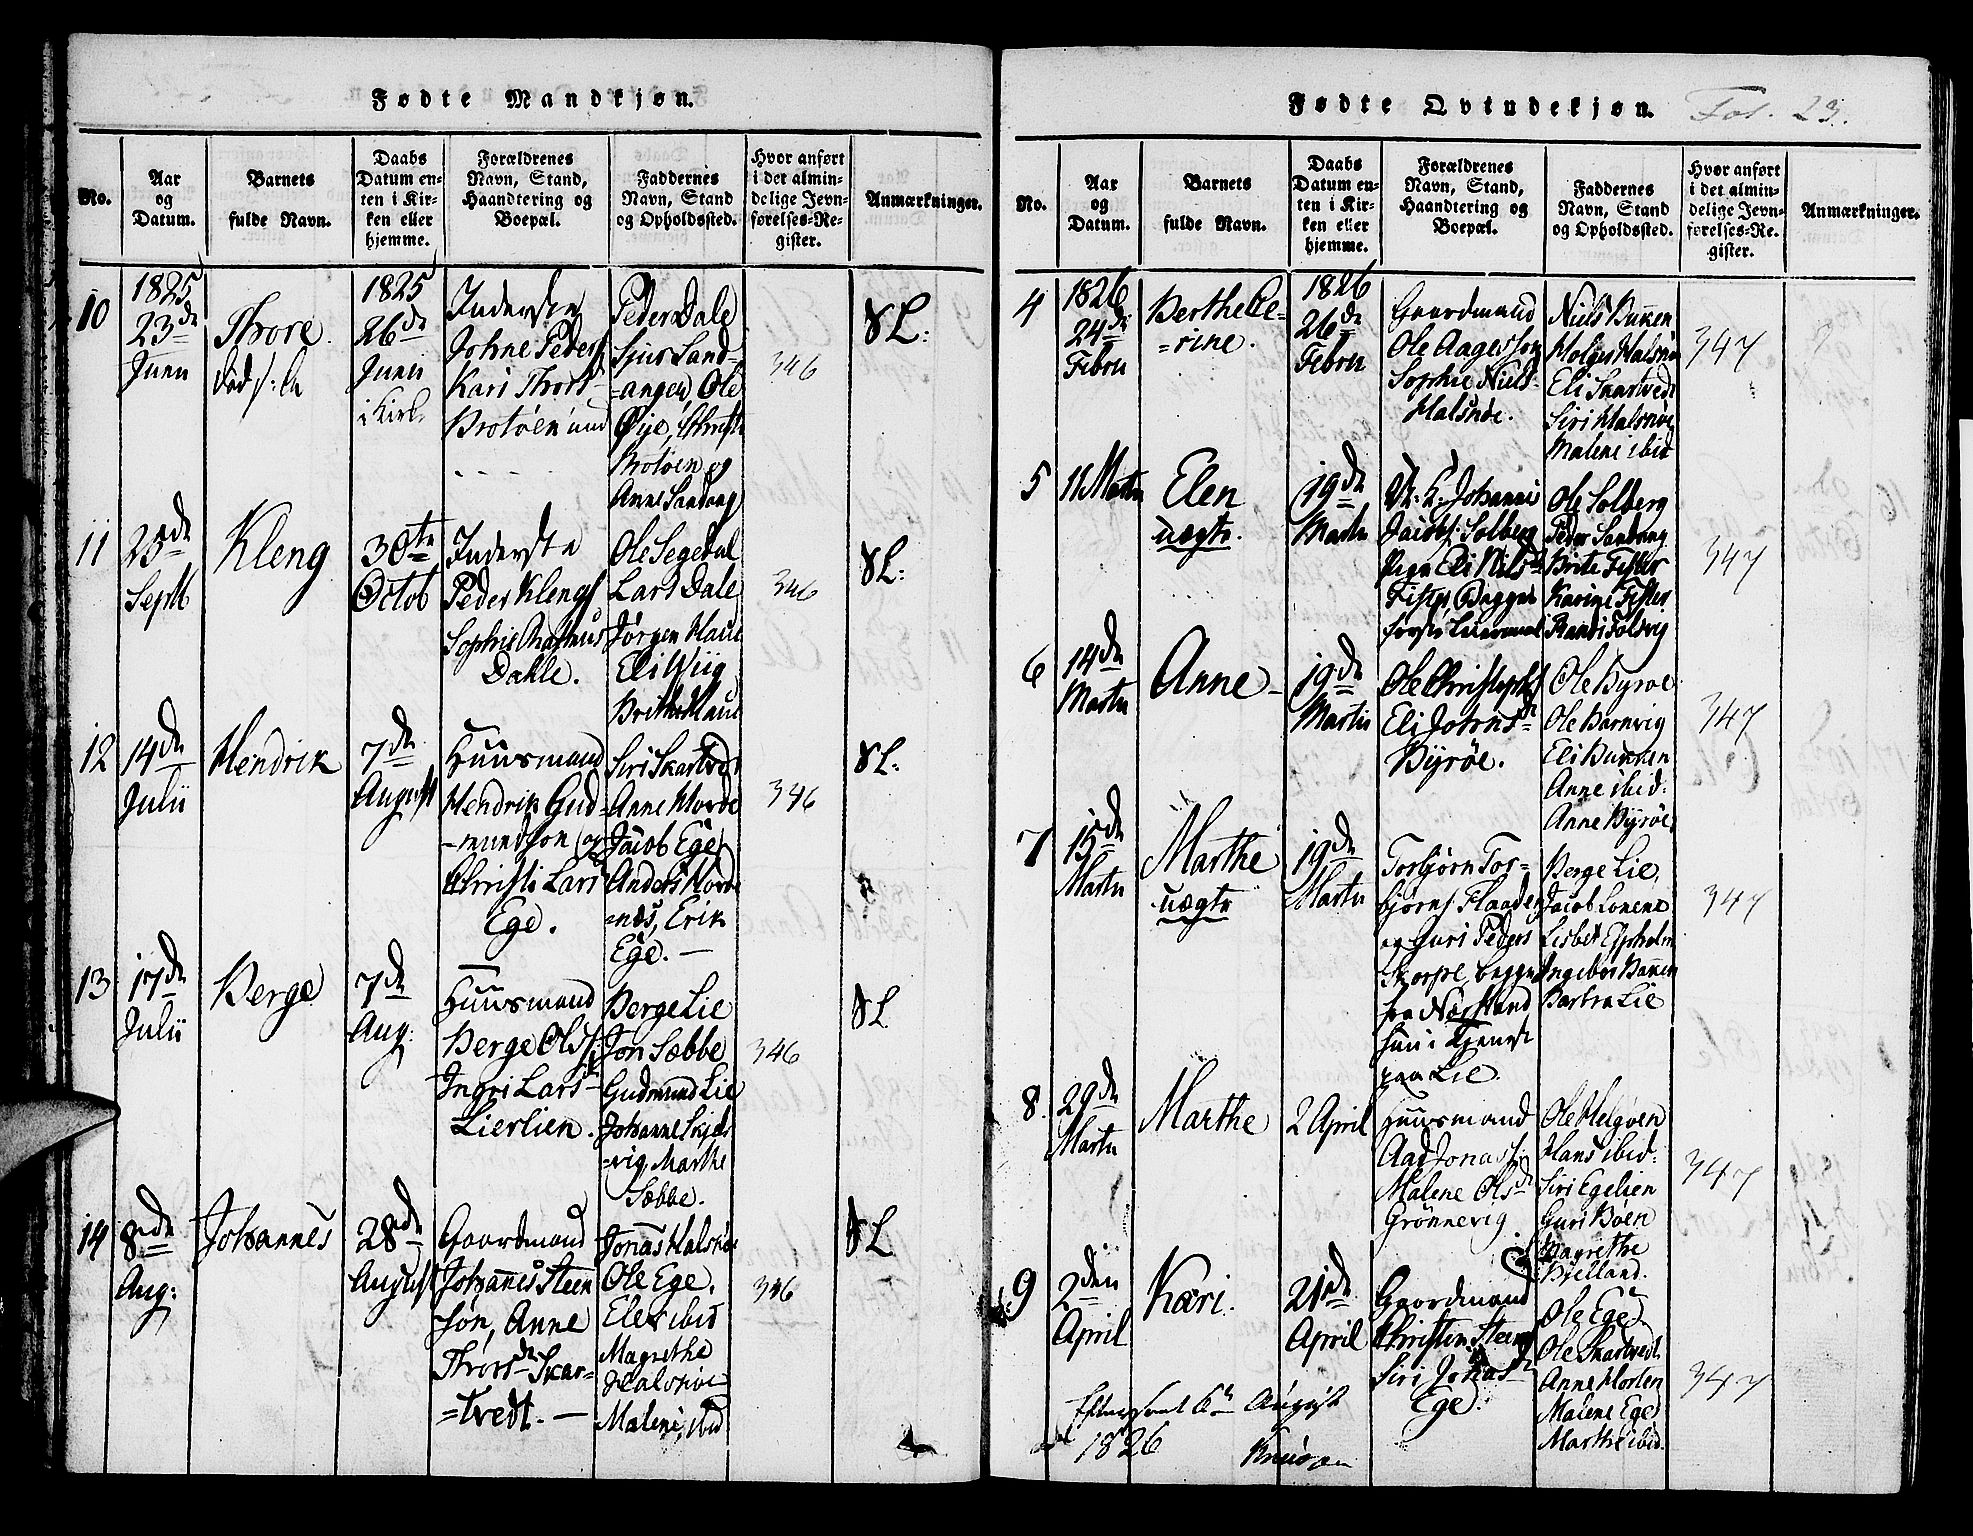 Fødte Mandkjøn.
No.
Aar
og
Datum.
Barnets
fulde Navn.
Daabs
Datum en-
ten i Kir-
ken eller
hjemme.
Forældrenes
Navn, Stand,
Haandtering og
Boepæl.
Faddernes
Navn, Stand
og Opholdssted.
Hvor anført
i det almin-
delige Jevn-
førelses-Re-
gister.
Anmærkninger.
10
1825
23de
Juni
Thore.
1825
26de
Juni
i Kirk.
Inderste
Johne Peders
Kari Thors
Peder Dale
Sjur Sand-
=angen, Ole
Øije,
Brotøen og
Anne Sandang
346
11
25de
Septb
Kleng
30te
Octob
Inderste
Peder Klengs
Sophie Rasmus
Dahle.
Ole Segedal
Lars Dale
Jørgen Haui
Eli Wiig
Brithe Haui
346
12
14de
Julii
Hendrik
7de
August
Huusmand
Hendrik Gud-
-mundson og
Christi Lars
Ege.
Siri Skartvedt
Anne Horde
Jacob Ege
Anders Horde
=næs, Erik
Ege. —
346
13
17de
Julii
Berge
7de
Aug:
Huusmand
Berge Ols
Ingri Lars
Lierlien.
Berge Lie
Jon Sæbbe
Gudmund Lie
Johanne
=vig, Marthe
Sæbbe.
346
14
8de
Aug:
Johannes
28de
August
Gaardmand
Johannes Steen
søn, Anne
Thorsd Skar-
=tvedt. —
Jonas Halsnøe
Ole Ege.
Elen ibid
Magrethe
Halsnøe
Malene ibid
346
Fødte Qvindekjøn.
Fol. 23.
No.
Aar
og
Datum.
Barnets
fulde Navn.
Daabs
Datum en-
ten i Kir-
ken eller
hjemme.
Forældrenes
Navn, Stand,
Haandtering og
Boepæl.
Faddernes
Navn, Stand
og Opholdssted.
Hvor anført
i det almin-
delige Jevn-
førelses-Re-
gister.
Anmærkninger.
4
1826
24de
Febru
Berthe Ce-
=rine.
1826
26de
Febru
Gaardmand
Ole Aagesson
Sophie Niels
Halsnøe.
Niels Bukken
Holger Halsnøe
Eli Skartvedt
Siri Halsnøe
Malene ibid
347
5
11 Marts
Elen
uægte.
19de
Marts
Johannes
Jacobs Solberg
Pige Eli Nils
Fister, Begges
første Leiermaal
Ole Solberg
Peder Sandvig
Brite Fister
Karine Fister
Randi Folsvig
347
6
14de
Marts
Anne
19de
Marts
Ole Christophs
Eli Johnsd
Byrøe.
Ole Byrøe
Ole Barnvig
Eli Bukken
Anne ibid:
Anne Byrøe.
347
7
15de
Marts
Marthe
uægte
19de
Marts
Torbjørn Tor-
bjørns
og Guri Peders
begge
fra Nærstrand
hun i Tjeneste
paa Lie.
Berge Lie,
Jacob
Lisbet Espholm
Ingebor Bakken
Barbra Lie
347
8.
29de
Marts
Marthe
2 April
Huusmand
Aad Jonas
Malene Olsd
Grønnevig
Ole Helgøen
Hans ibid:
Siri Egelien
Guri Bøen
Magrethe
Bjelland.
347
9
2den
April
Kari.
21de
April
Gaardmand
Christen Steens
Siri Jonasd
Ege.
Ole Ege
Ole Skartvedt.
Anne Horten
Malene Ege
Marthe ibid.
347
6te August
1826